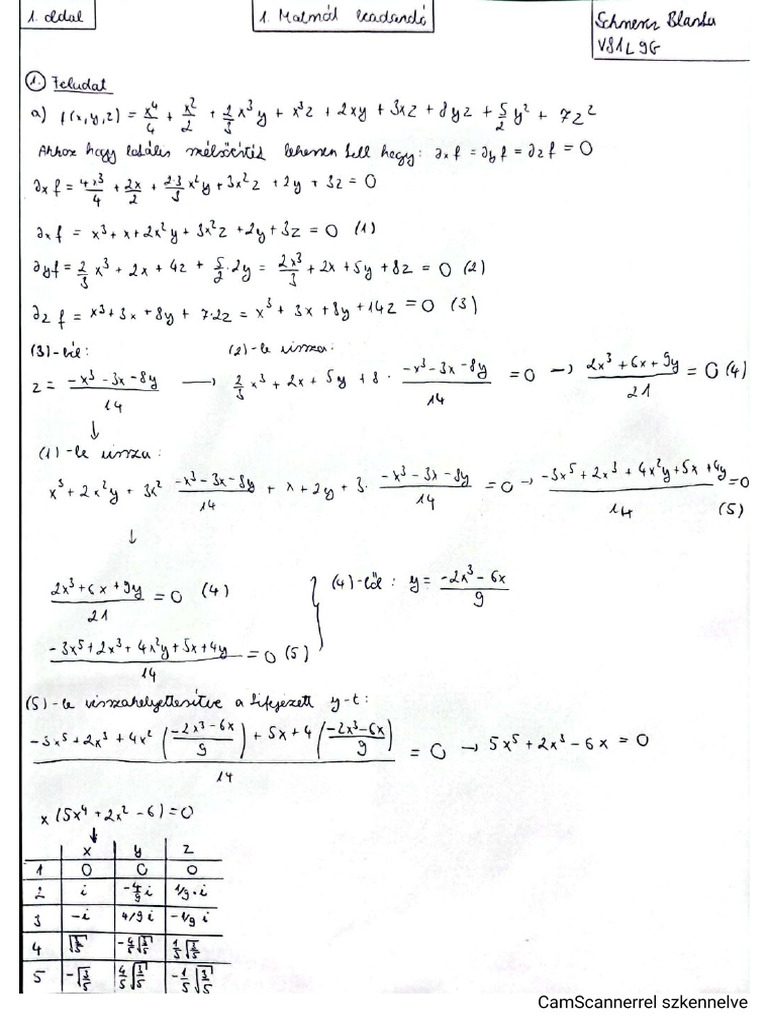 1. oldal
1. Matmód beadandó
Schnerer Blanka
V81L9G
1. Feladat
a) f(x,y,z) = x⁴/4 + x²/2 + 2/3 x³y + x³z + 2xy + 3xz + 8yz + 5/2 y² + 7z²
Ahhoz hogy lokális szélsőérték lehessen kell hogy: ∂xf = ∂yf = ∂zf = 0
∂xf = 4x³/4 + 2x/2 + 2·3/3 x²y + 3x²z + 2y + 3z = 0
∂xf = x³ + x + 2x²y + 3x²z + 2y + 3z = 0 (1)
∂yf = 2/3 x³ + 2x + 4z + 5/2 · 2y = 2x³/3 + 2x + 5y + 8z = 0 (2)
∂zf = x³ + 3x + 8y + 7·2z = x³ + 3x + 8y + 14z = 0 (3)
(3)-ból: (2)-be vissza:
z = (-x³ - 3x - 8y)/14 → 2/3 x³ + 2x + 5y + 8 · (-x³ - 3x - 8y)/14 = 0 → (2x³ + 6x + 9y)/21 = 0 (4)
↓
(1)-be vissza:
x³ + 2x²y + 3x² · (-x³ - 3x - 8y)/14 + x + 2y + 3 · (-x³ - 3x - 8y)/14 = 0 → (-3x⁵ + 2x³ + 4x²y + 5x + 4y)/14 = 0 (5)
↓
(2x³ + 6x + 9y)/21 = 0 (4)
(-3x⁵ + 2x³ + 4x²y + 5x + 4y)/14 = 0 (5)
} (4)-ből: y = (-2x³ - 6x)/9
(5)-be visszahelyettesítve a kifejezett y-t:
(-3x⁵ + 2x³ + 4x² ((-2x³ - 6x)/9) + 5x + 4 ((-2x³ - 6x)/9))/14 = 0 → 5x⁵ + 2x³ - 6x = 0
x (5x⁴ + 2x² - 6) = 0
↓
x y z
1 0 0 0
2 i -4/9 i 1/9 · i
3 -i 4/9 i -1/9 i
4 √(3/5) -4/5 √(3/5) 1/5 √(3/5)
5 -√(3/5) 4/5 √(3/5) -1/5 √(3/5)
CamScannerrel szkennelve